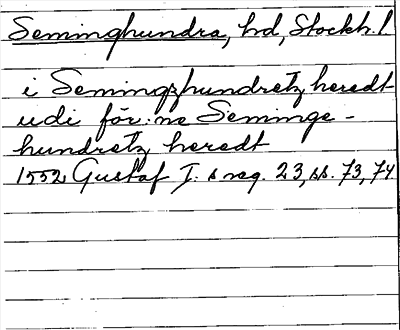 Seminghundra, hd, Stockh. l
i Semingzhundretz heredt
udi för:ne Seminge-
hundretz heredt
1552 Gustaf I:s reg. 23, ss. 73, 74